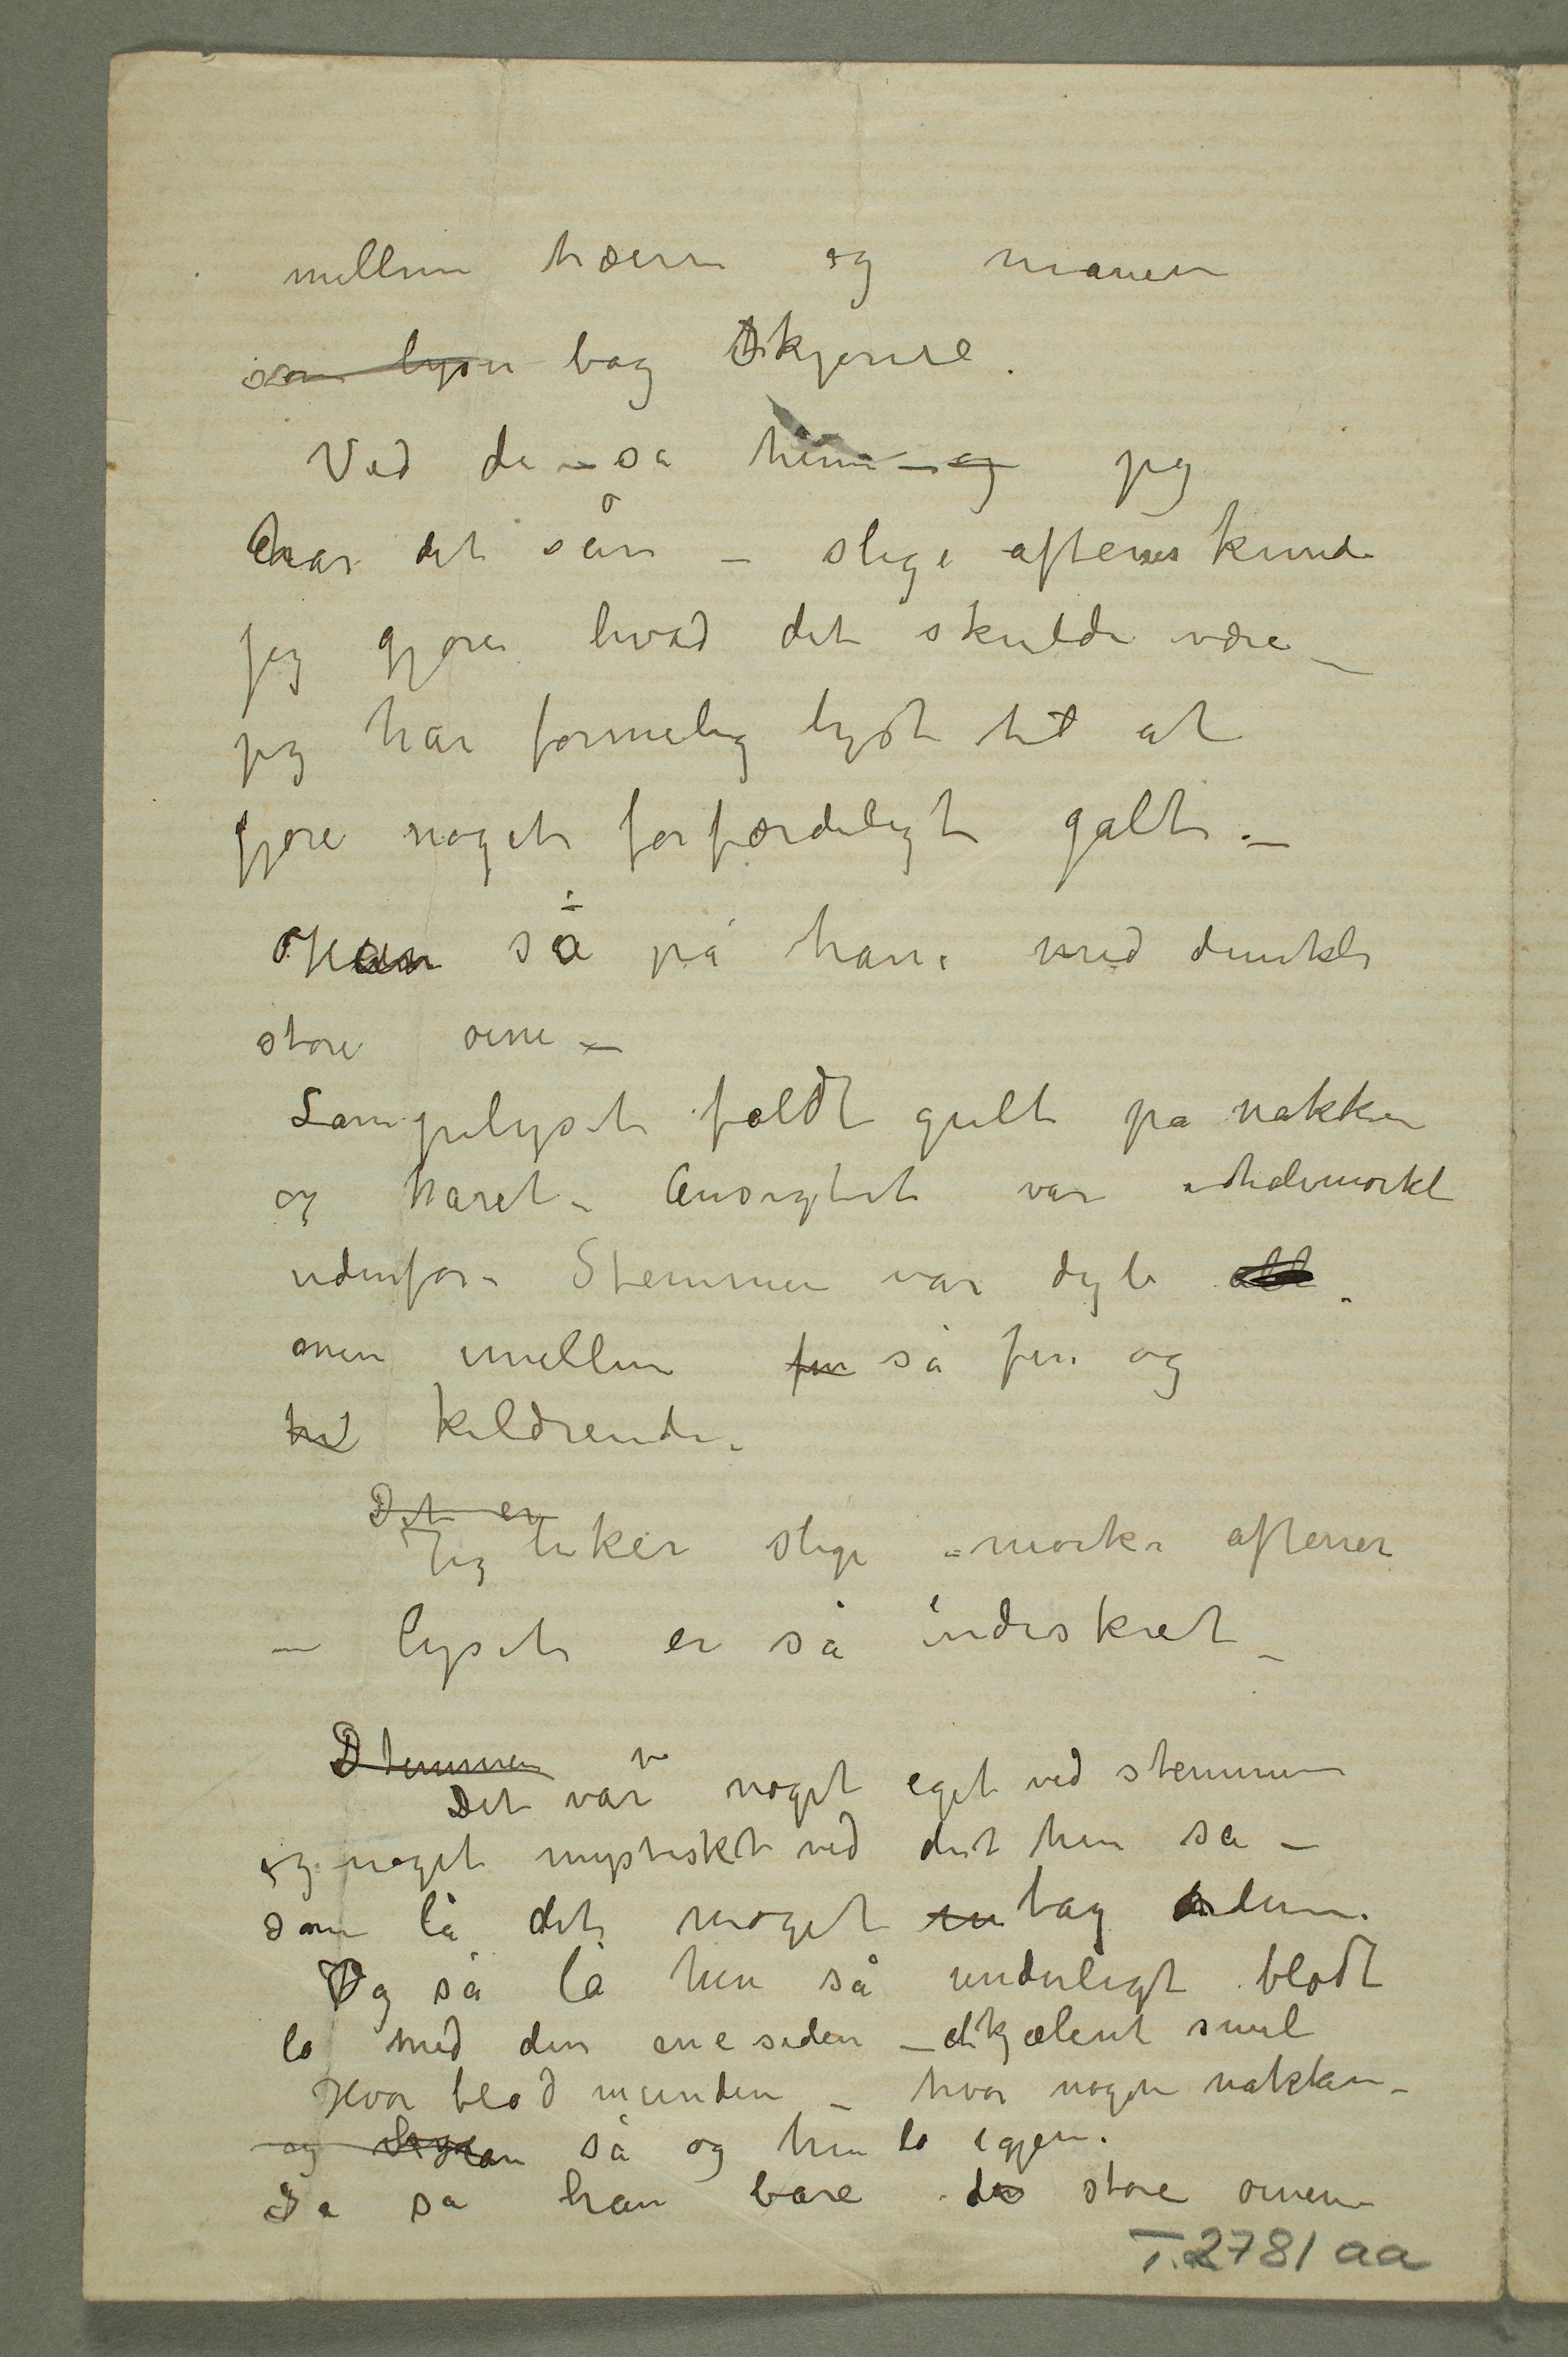 mellem træerne og manen
som lyser bag skyerne.
Ved de – sa hun – og jeg
har det sån – slige aftener kunde
jeg gjøre hvad det skulde være –
jeg har formelig lyst til at
gjøre noget forfærdeligt galt –
Hun så på ham med dunkle
store øine –
Lampelyset faldt gult på nakken
og håret – Ansigtet var halvmørkt
udenfor – Stemmen var dyb alt –
men imellem fin så fin og
kildrende –
Det er
Jeg liker slige mørke aftener
– lyset er så indiskret –
Stemmen
Det var noget eget ved stemmen
og noget mystiskt ved det hun sa –
som lå det noget bag ordene.
Og så lo hun så underligt blødt
lo med den ene siden – et kjælent smil
Hvor blød munden – hvor nøgen nakken –
og han så og hun lo igjen.
Da så han bare de store øinene
T.2781 aa